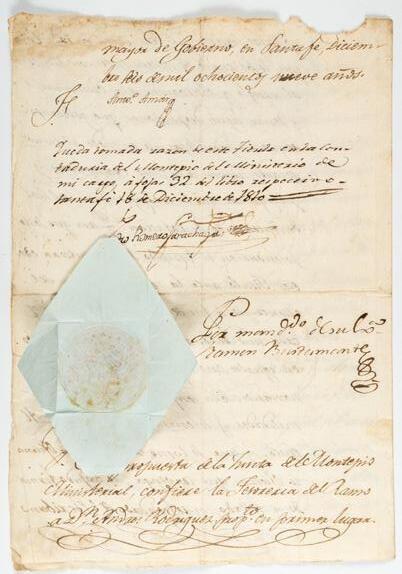 mayor de Gobierno, en Santafe, Diciem-
bre de mil ochocientos nueve años.
Anto. Amar
Queda tomada razon de este titulo en la Con-
taduria del Montepio del Ministerio de
mi cargo, à fojas 32 del libro respectivo
Santafé 18 de Diciembre de 1810
Romero
Por mand.do de su Exa
Ramon
propuesta de la Junta del Montepio
Ministerial, confiere la del Ramo
a Dn. Andres Rodriguez, propto. en primer lugar.